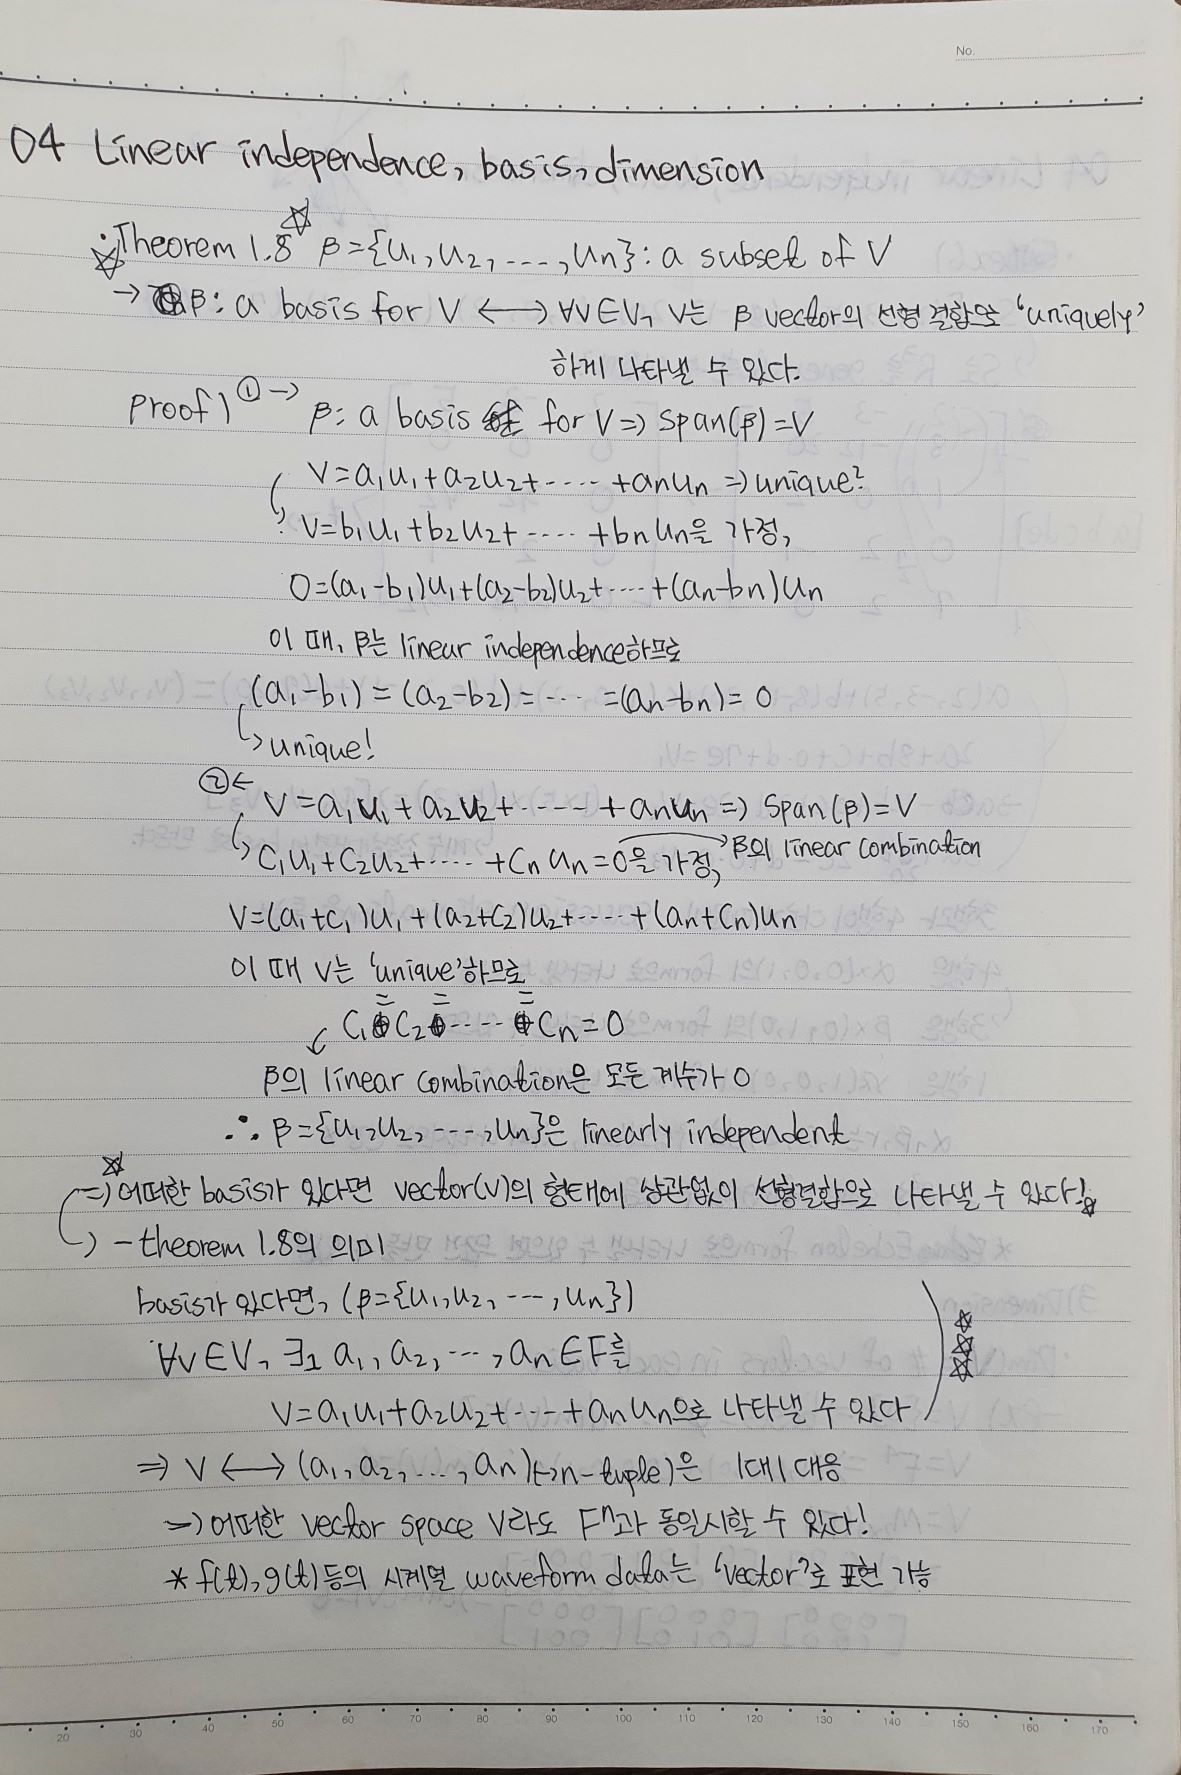 No.
04 Linear independence, basis, dimension
·Theorem 1.8 β={u₁, u₂, ----, uₙ}: a subset of V
→ β: a basis for V ⟷ ∀v∈V, v는 β vector의 선형 결합으로 'uniquely'
하게 나타낼 수 있다.
Proof) ①→ β: a basis for V ⇒ Span(β)=V
V=a₁u₁+a₂u₂+-----+aₙuₙ ⇒ unique?
V=b₁u₁+b₂u₂+----+bₙuₙ을 가정,
0=(a₁-b₁)u₁+(a₂-b₂)u₂+----+(aₙ-bₙ)uₙ
이 때, β는 linear independence하므로
(a₁-b₁)=(a₂-b₂)=---=(aₙ-bₙ)=0
↳ unique!
②← V=a₁u₁+a₂u₂+-----+aₙuₙ ⇒ Span(β)=V
↳ C₁u₁+C₂u₂+-----+Cₙuₙ=0을 가정, → β의 linear combination
V=(a₁+c₁)u₁+(a₂+c₂)u₂+-----+(aₙ+cₙ)uₙ
이 때 v는 'unique'하므로
C₁=C₂=----=Cₙ=0
β의 linear combination은 모든 계수가 0
∴ β={u₁,u₂,----,uₙ}은 linearly independent
⇒ 어떠한 basis가 있다면 vector(v)의 형태에 상관없이 선형결합으로 나타낼 수 있다!
- theorem 1.8의 의미
basis가 있다면, (β={u₁,u₂,---,uₙ})
∀v∈V, ∃1 a₁, a₂, ---, aₙ∈F를
V=a₁u₁+a₂u₂+---+aₙuₙ으로 나타낼 수 있다
⇒ v ⟷ (a₁, a₂, ---, aₙ)(→n-tuple)은 1대1 대응
⇒ 어떠한 vector space V라도 Fⁿ과 동일시할 수 있다!
* f(t), g(t) 등의 시계열 waveform data는 'vector'로 표현 가능
20 30 40 50 60 70 80 90 100 110 120 130 140 150 160 170